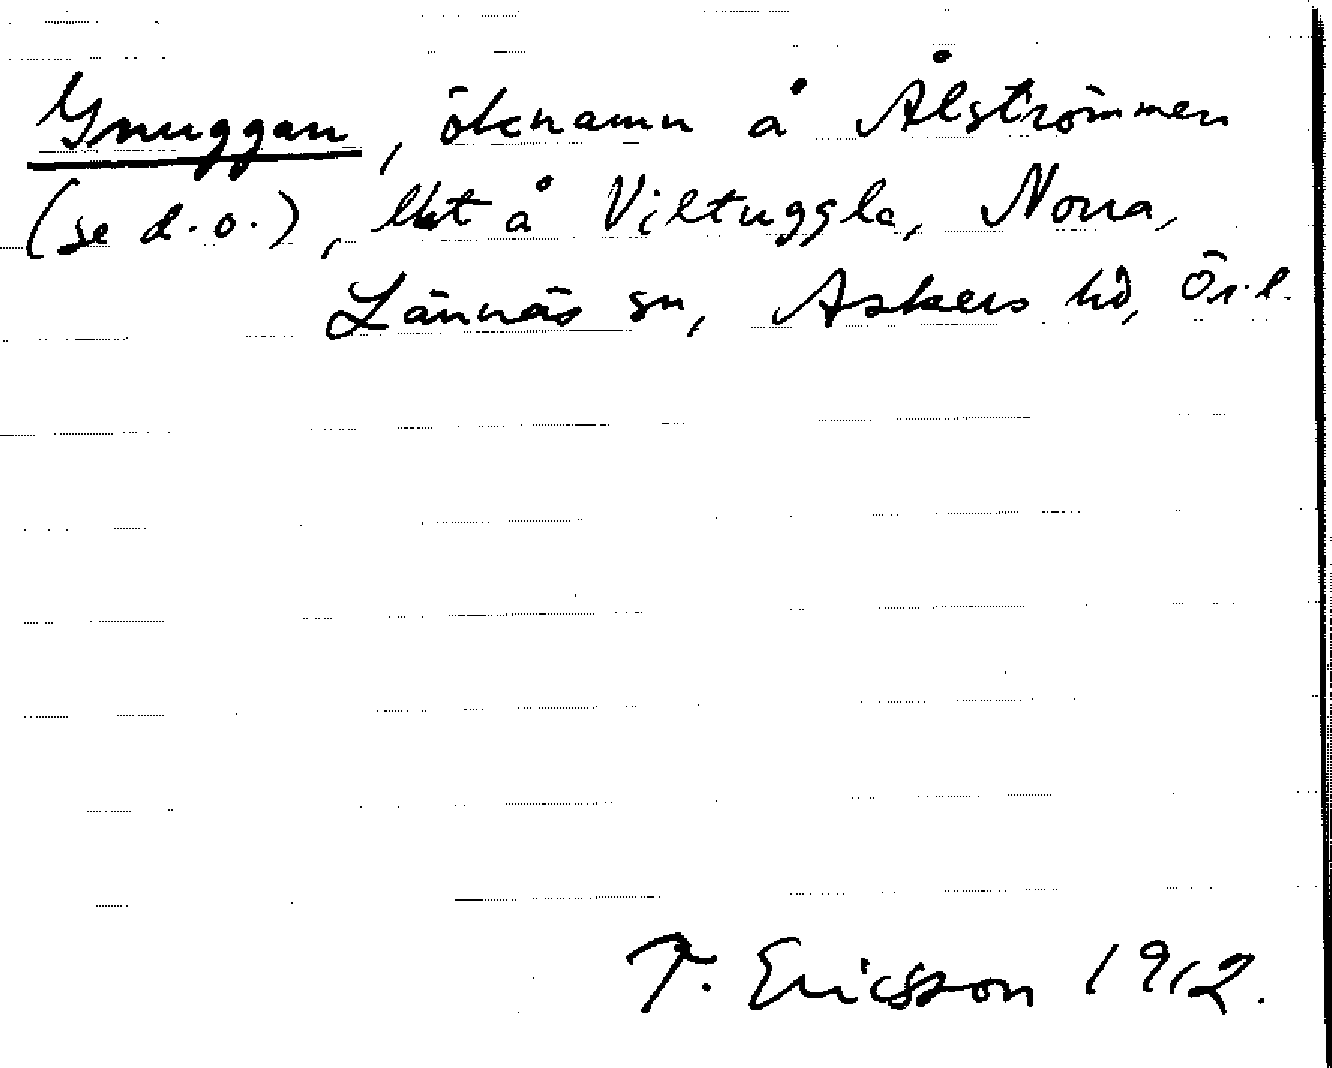 Gnuggan, öknamn å Ålströmmen
(se d.o.), lht å Viltuggla, Norra,
Lännäs sn, Askers hd, Ör.l.
T. Ericsson 1912.